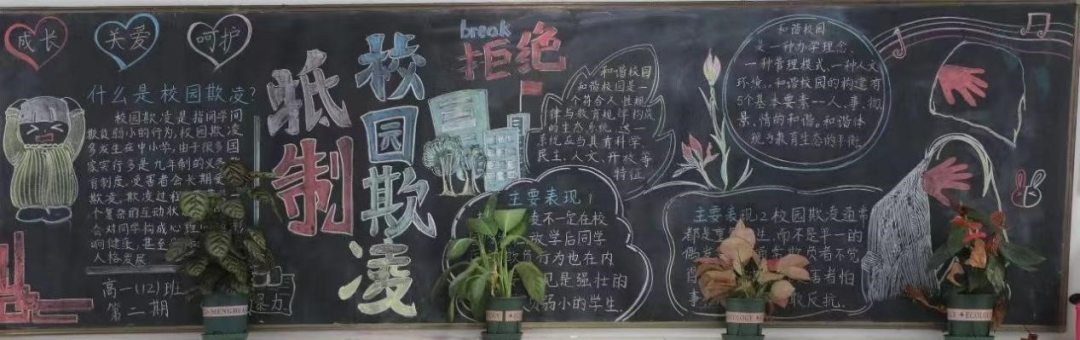 成长
关爱
呵护
什么是校园欺凌?
校园欺凌是指同学间
欺负弱小的行为,校园欺凌
多发生在中小学,由于很多国
家实行多是九年制的义务
育制度,受害者会长期受
欺凌,欺凌过
个复杂的互动状
会对同学构成心
响健康,甚至
人格发展
高一(12)班
第二期
抵制
校园欺凌
break
拒绝
和谐校园
和谐校园是一
个符合人性规
律与教育规律构成
的生态系统,这一
系统应当具有科学、
民主、人文、开放等
特征
主要表现1
凌不一定在校
放学后同学
行为也在内
见是强壮的
弱小的学生
和谐校园
是一种办学理念,
一种管理模式,一种人文
环境,和谐校园的构建有
5个基本要素--人、事、
景、情的和谐。和谐体
现为教育生态的平衡
主要表现2校园欺凌通常
都是 生,而不是单一的
偶
者不觉
害者怕
事 敢反抗.
ECOLOGY